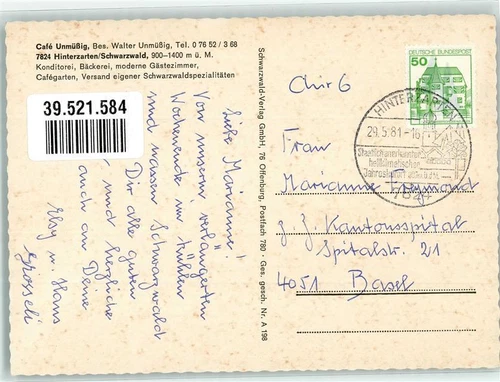 Café Unmüßig, Bes. Walter Unmüßig, Tel. 0 76 52 / 3 68
7824 Hinterzarten/Schwarzwald, 900–1400 m ü. M.
Konditorei, Bäckerei, moderne Gästezimmer,
Cafégarten, Versand eigener Schwarzwaldspezialitäten
39.521.584
Liebe Marianne!
Von unserm verlängerten
Wochenende im kühlen
und nassen Schwarzwald
Dir alle guten
und herzliche
auch an Deine
Elsy u. Hans
Schwarzwald-Verlag GmbH, 76 Offenburg, Postfach 780 · Ges. gesch. Nr. A 198
DEUTSCHE BUNDESPOST
50
HINTERZARTEN
29.5.81-16
Staatlich anerkannter
heilklimatischer
Jahreskurort
7824
Chir 6
Frau
Marianne
z. Z. Kantonsspital
Spitalstr. 21
4051 Basel